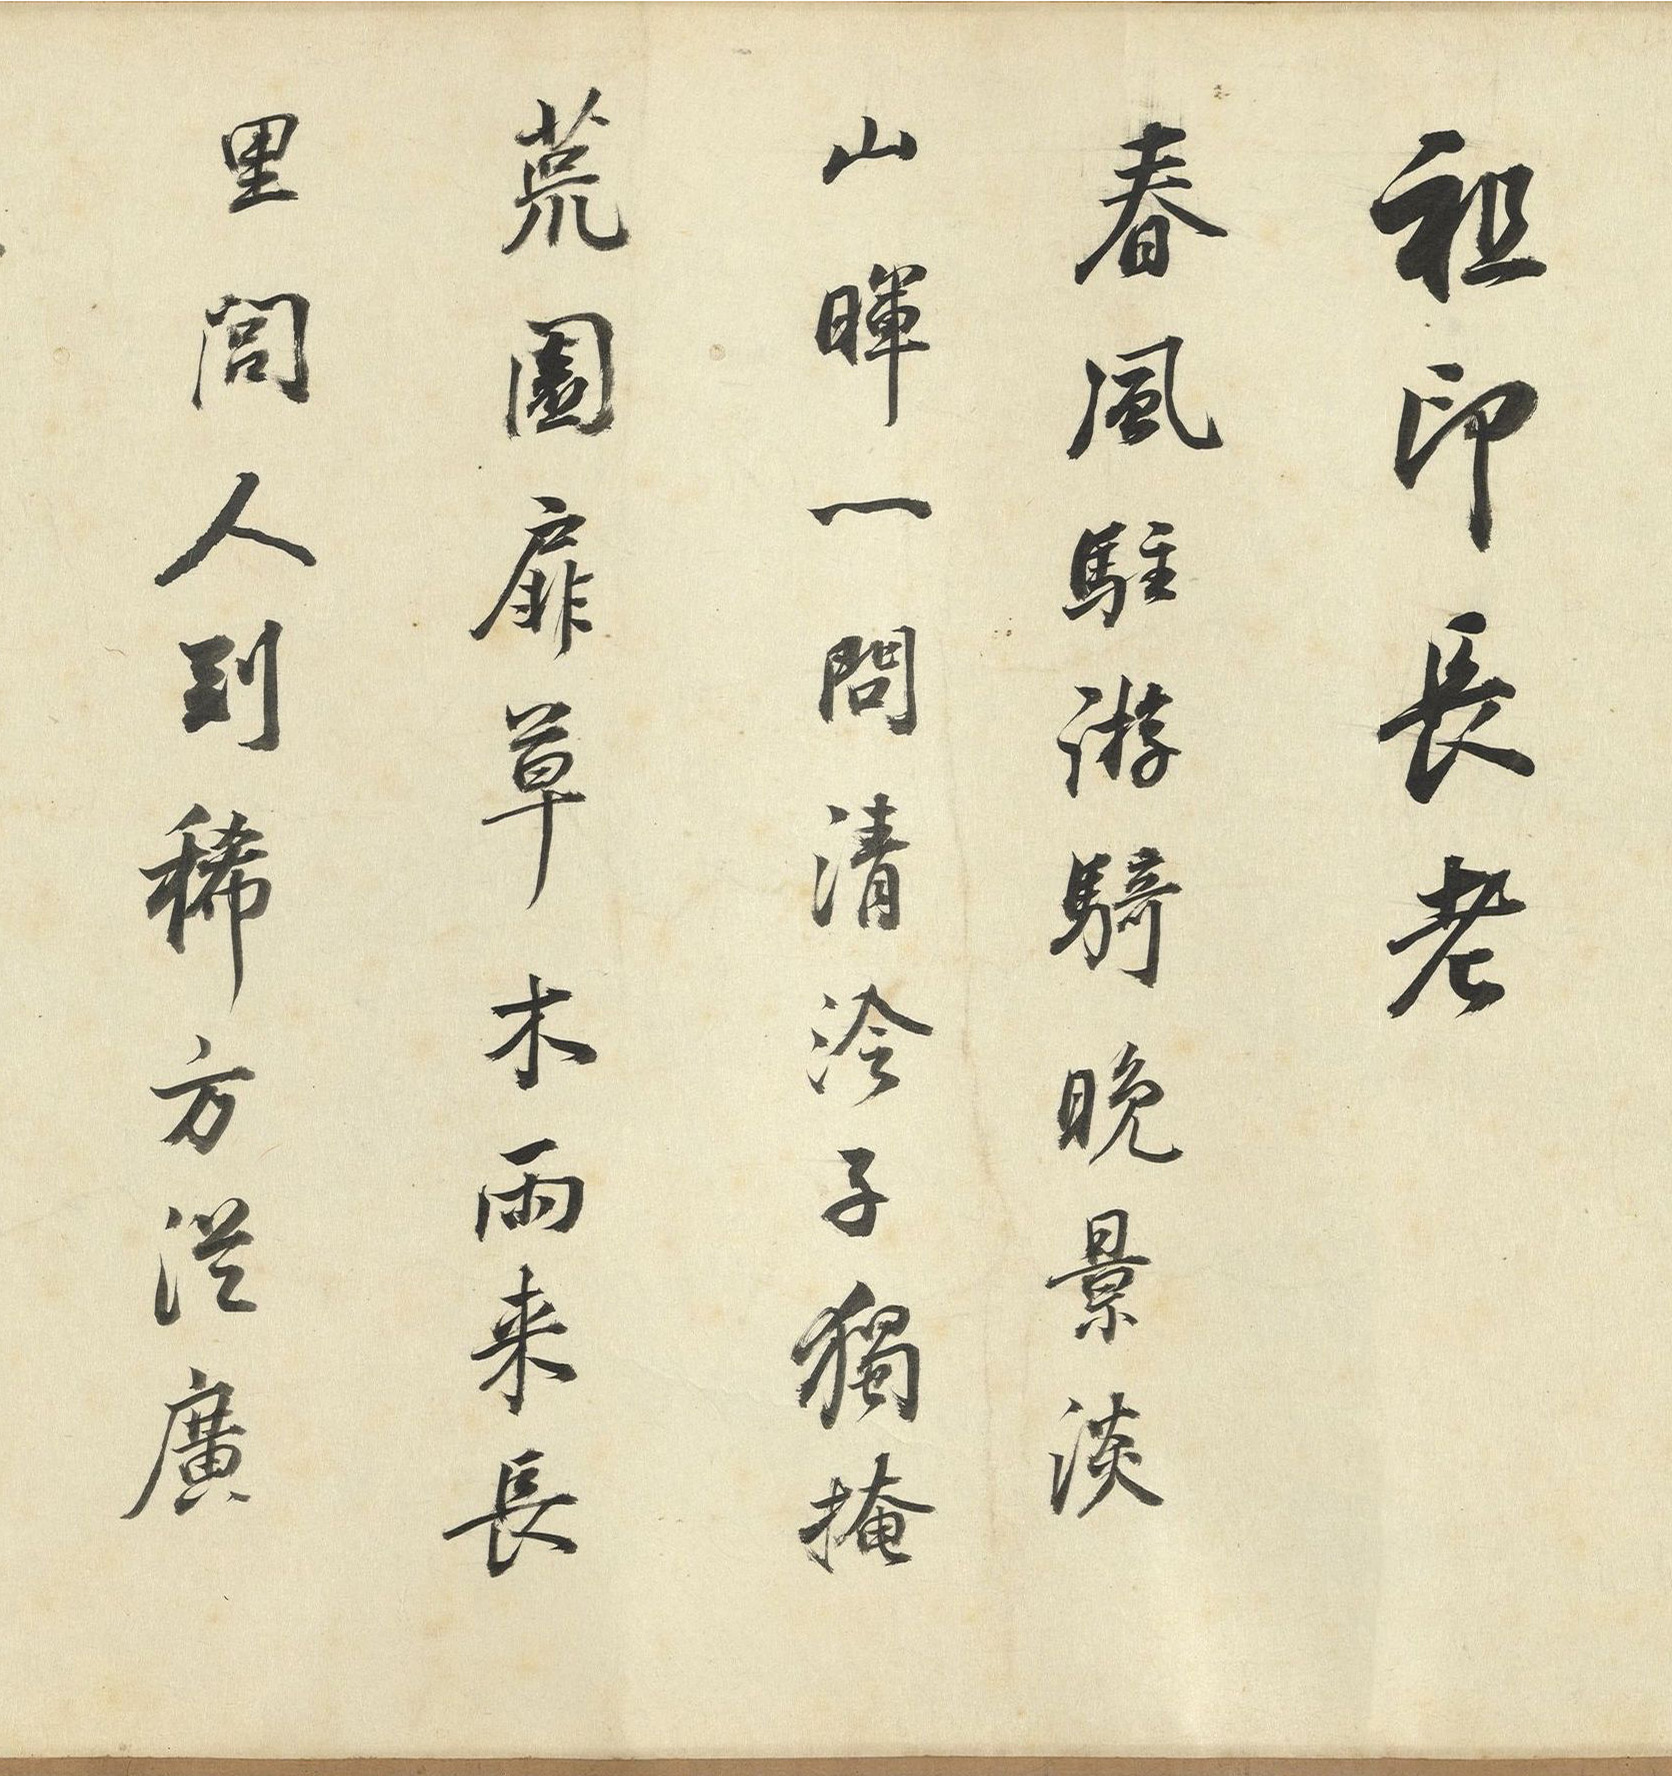 祖印長老
春風駐游騎晚景淡
山暉一問清泠子獨掩
荒園扉草木雨来長
里閭人到稀方從廣